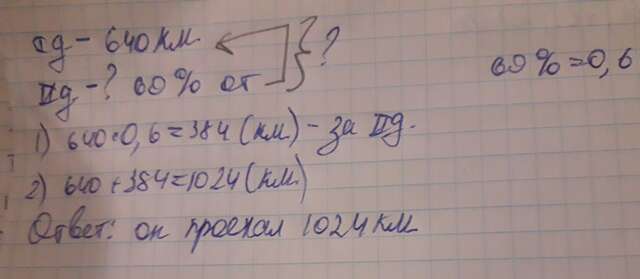 Iд - 640 км
IIд - ? 60% от } ?
60% = 0,6
1) 640·0,6=384 (км) - за IIд.
2) 640+384=1024 (км)
Ответ: он проехал 1024 км